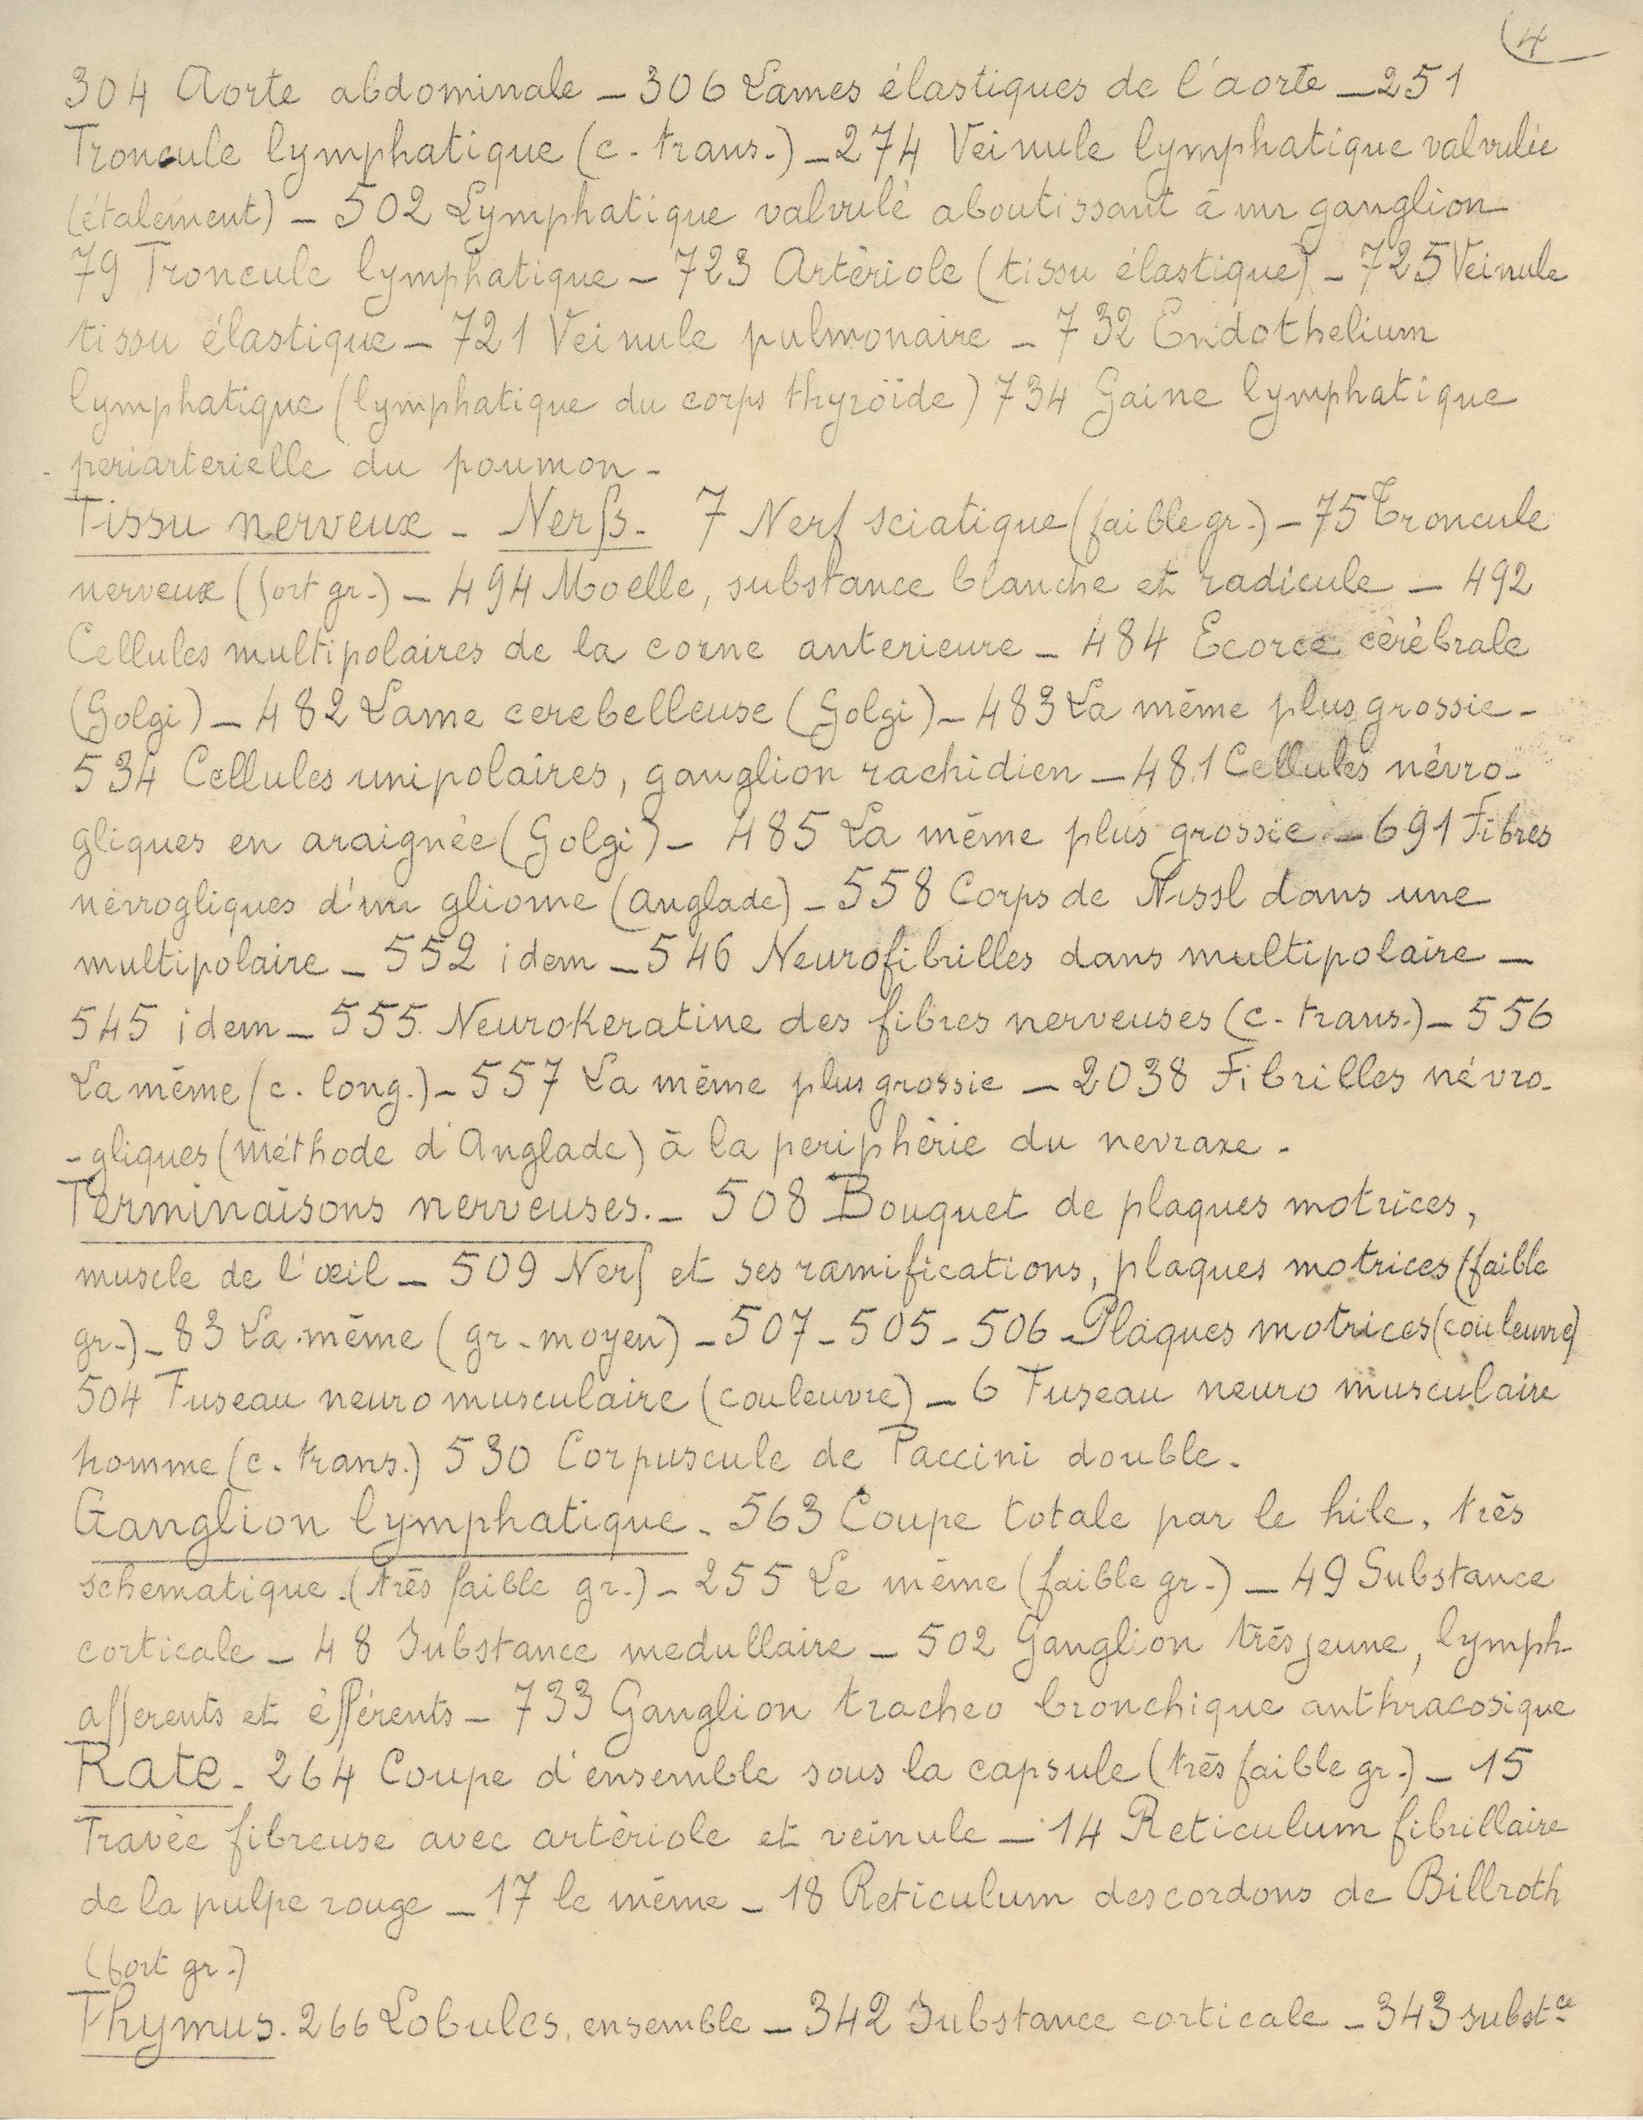 4
304 Aorte abdominale - 306 Lames élastiques de l'aorte - 251
Troncule lymphatique (c. trans.) - 274 Veinule lymphatique valvulée
(étalement) - 502 Lymphatique valvulé aboutissant à un ganglion
79 Troncule lymphatique - 723 Artèriole (tissu élastique) - 725 Veinule
tissu élastique - 721 Veinule pulmonaire - 732 Endothelium
lymphatique (lymphatique du corps thyroïde) 734 Gaine lymphatique
periarterielle du poumon -
Tissu nerveux - Nerfs - 7 Nerf sciatique (faible gr.) - 75 Troncule
nerveux (fort gr.) - 494 Moelle, substance blanche et radicule - 492
Cellules multipolaires de la corne anterieure - 484 Ecorce cèrèbrale
(Golgi) - 482 Lame cerebelleuse (Golgi) - 483 La même plus grossie -
534 Cellules unipolaires, ganglion rachidien - 481 Cellules névro-
gliques en araignée (Golgi) - 485 La même plus grossie - 691 Fibres
névrogliques d'un gliome (Anglade) - 558 Corps de Nissl dans une
multipolaire - 552 idem - 546 Neurofibrilles dans multipolaire -
545 idem - 555 Neurokeratine des fibres nerveuses (c. trans.) - 556
La même (c. long.) - 557 La même plus grossie - 2038 Fibrilles névro-
-gliques (méthode d'Anglade) à la periphèrie du nevraxe -
Terminaisons nerveuses. - 508 Bouquet de plaques motrices,
muscle de l'œil - 509 Nerf et ses ramifications, plaques motrices (faible
gr.) - 83 La même (gr. moyen) - 507 - 505 - 506 Plaques motrices (couleuvre)
504 Fuseau neuro musculaire (couleuvre) - 6 Fuseau neuro musculaire
homme (c. trans.) 530 Corpuscule de Paccini double -
Ganglion lymphatique - 563 Coupe totale par le hile, très
schematique (très faible gr.) - 255 Le même (faible gr.) - 49 Substance
corticale - 48 Substance medullaire - 502 Ganglion très jeune, lymph.
afferents et éfférents - 733 Ganglion tracheo bronchique anthracosique
Rate - 264 Coupe d'ensemble sous la capsule (très faible gr.) - 15
Travée fibreuse avec artèriole et veinule - 14 Reticulum fibrillaire
de la pulpe rouge - 17 le même - 18 Reticulum des cordons de Billroth
(fort gr.)
Thymus - 266 Lobules, ensemble - 342 Substance corticale - 343 subst.ce